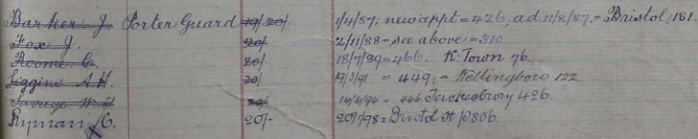 Barker J. Porter Guard 19/20/- 1/4/87; new appt = 426, ad 11/8/87 = Bristol, 181
Fox J. 20/- 2/11/88 - see above = 310
Roome C. 20/- 18/7/89 = 466. K. Town 76.
Liggins A.H. 20/- 19/3/91 = 449, = Wellingboro 122
Savage W. 20/- 14/4/94 = 446 Tewkesbury 426.
Ryman C. 20/- 20/1/98 = Bristol